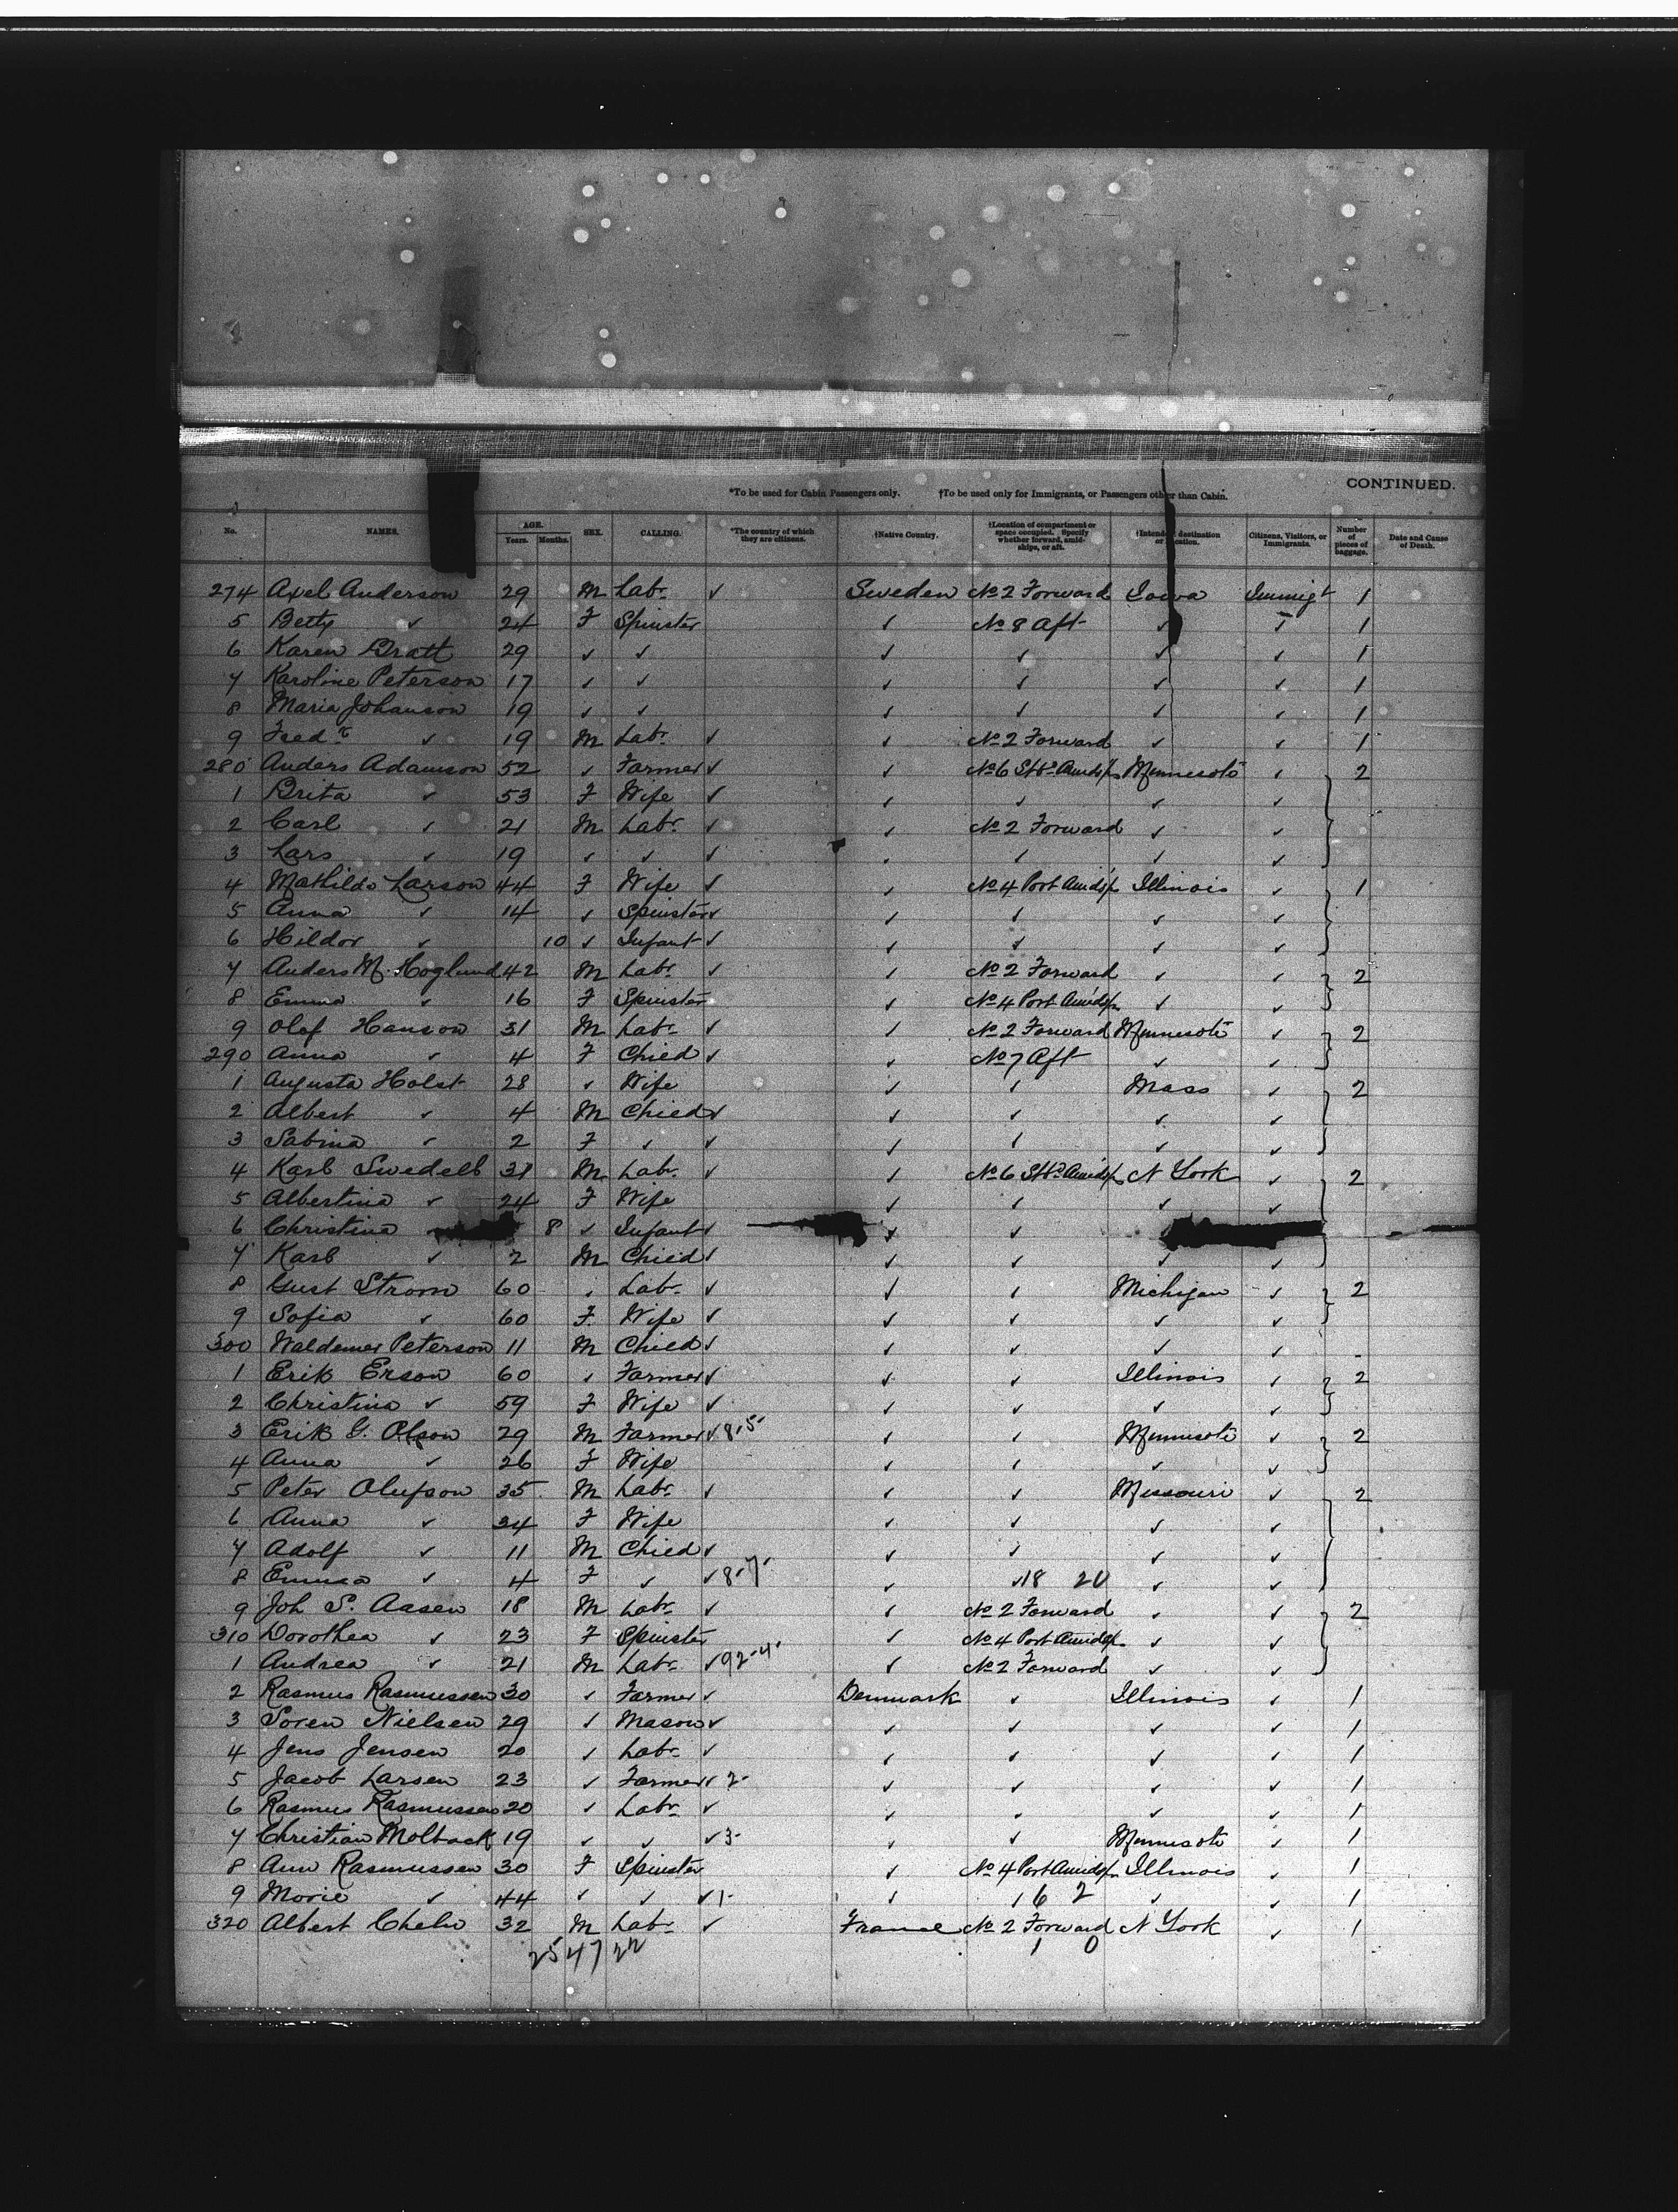 CONTINUED.
*To be used for Cabin Passengers only. †To be used only for Immigrants, or Passengers other than Cabin.
No. NAMES. AGE. Years. Months. SEX. CALLING. *The country of which they are citizens. †Native Country. †Location of compartment or space occupied. Specify whether forward, amidships, or aft. †Intended destination or location. Citizens, Visitors, or Immigrants. Number of pieces of baggage. Date and Cause of Death.
274 Axel Anderson 29 M Labr ✓ Sweden No 2 Forward Iowa Immigt 1
5 Betty ✓ 24 F Spinster ✓ No 8 Aft ✓ ✓ 1
6 Karen Bratt 29 ✓ ✓ ✓ ✓ ✓ ✓ 1
7 Karoline Peterson 17 ✓ ✓ ✓ ✓ ✓ ✓ 1
8 Maria Johanson 19 ✓ ✓ ✓ ✓ ✓ ✓ 1
9 Fredk ✓ 19 M Labr ✓ ✓ No 2 Forward ✓ ✓ 1
280 Anders Adamson 52 ✓ Farmer ✓ ✓ No 6 Stbd Amidsps Minnesota ✓ 2
1 Brita ✓ 53 F Wife ✓ ✓ ✓ ✓ ✓
2 Carl ✓ 21 M Labr ✓ ✓ No 2 Forward ✓ ✓
3 Lars ✓ 19 ✓ ✓ ✓ ✓ ✓ ✓ ✓
4 Mathilda Larson 44 F Wife ✓ ✓ No 4 Port Amidsp Illinois ✓ 1
5 Anna ✓ 14 ✓ Spinster ✓ ✓ ✓ ✓ ✓
6 Hildor ✓ 10 ✓ Infant ✓ ✓ ✓ ✓ ✓
7 Anders M. Hoglund 42 M Labr ✓ ✓ No 2 Forward ✓ ✓ 2
8 Emma ✓ 16 F Spinster ✓ No 4 Port Amidsp ✓ ✓
9 Olof Hanson 31 M Labr ✓ ✓ No 2 Forward Minnesota ✓ 2
290 Anna ✓ 4 F Child ✓ ✓ No 7 Aft ✓ ✓
1 Augusta Holst 28 ✓ Wife ✓ ✓ Mass ✓ 2
2 Albert ✓ 4 M Child ✓ ✓ ✓ ✓ ✓
3 Sabina ✓ 2 F ✓ ✓ ✓ ✓ ✓ ✓
4 Karl Swedell 31 M Labr ✓ ✓ No 6 Stbd Amidsp N York ✓ 2
5 Albertina ✓ 24 F Wife ✓ ✓ ✓ ✓
6 Christina 8 ✓ Infant ✓ ✓ ✓
7 Karl ✓ 2 M Child ✓ ✓ ✓ ✓ ✓
8 Gust Strom 60 ✓ Labr ✓ ✓ ✓ Michigan ✓ 2
9 Sofia ✓ 60 F Wife ✓ ✓ ✓ ✓ ✓
300 Waldemer Peterson 11 M Child ✓ ✓ ✓ ✓ ✓ -
1 Erik Erson 60 ✓ Farmer ✓ ✓ ✓ Illinois ✓ 2
2 Christina ✓ 59 F Wife ✓ ✓ ✓ ✓ ✓
3 Erik G. Olson 29 M Farmer ✓ 8-5- ✓ ✓ Minnesota ✓ 2
4 Anna ✓ 26 F Wife ✓ ✓ ✓ ✓
5 Peter Olufson 35 M Labr ✓ ✓ ✓ Missouri ✓ 2
6 Anna ✓ 34 F Wife ✓ ✓ ✓ ✓
7 Adolf ✓ 11 M Child ✓ ✓ ✓ ✓ ✓
8 Emma ✓ 4 F ✓ ✓ 8-7- ✓ ✓ 18 20 ✓ ✓
9 Joh S. Aasen 18 M Labr ✓ ✓ No 2 Forward ✓ ✓ 2
310 Dorothea ✓ 23 F Spinster ✓ No 4 Port Amidsp ✓ ✓
1 Andrea ✓ 21 M Labr ✓ 92-4- ✓ No 2 Forward ✓ ✓
2 Rasmus Rasmussen 30 ✓ Farmer ✓ Denmark ✓ Illinois ✓ 1
3 Soren Nielsen 29 ✓ Mason ✓ ✓ ✓ ✓ ✓ 1
4 Jens Jensen 20 ✓ Labr ✓ ✓ ✓ ✓ ✓ 1
5 Jacob Larsen 23 ✓ Farmer ✓ 2- ✓ ✓ ✓ ✓ 1
6 Rasmus Rasmussen 20 ✓ Labr ✓ ✓ ✓ ✓ ✓ 1
7 Christian Molback 19 ✓ ✓ ✓ 3- ✓ ✓ Minnesota ✓ 1
8 Ann Rasmussen 30 F Spinster ✓ No 4 Port Amidsp Illinois ✓ 1
9 Morie ✓ 44 ✓ ✓ ✓ 1- ✓ 1 6 2 ✓ ✓ 1
320 Albert Chelu 32 M Labr ✓ France No 2 Forward N York ✓ 1
25 47 22 1 0